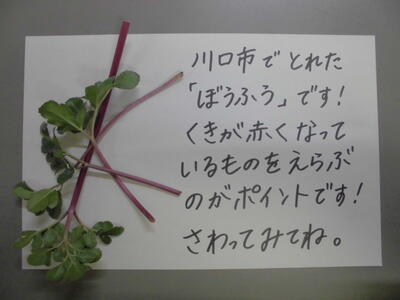 川口市でとれた
「ぼうふう」です!
くきが赤くなって
いるものをえらぶ
のがポイントです!
さわってみてね。